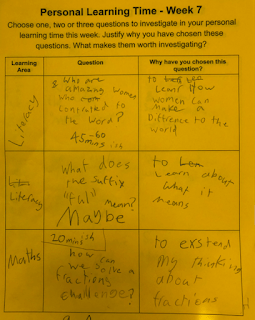 Personal Learning Time - Week 7
Choose one, two or three questions to investigate in your personal
learning time this week. Justify why you have chosen these
questions. What makes them worth investigating?
Learning
Area
Question
Why have you chosen this
question?
Literacy
Who are
amazing women
who
contrated to
the word?
45-60
mins ish
to
learn how
women can
make a
difference to the
world
Literacy
What does
the suffix
"ful" mean?
Maybe
to
learn about
what it
means
Maths
20 mins ish
how can
we solve a
fractions
challenge?
to exstend
my thinking
about
fractions